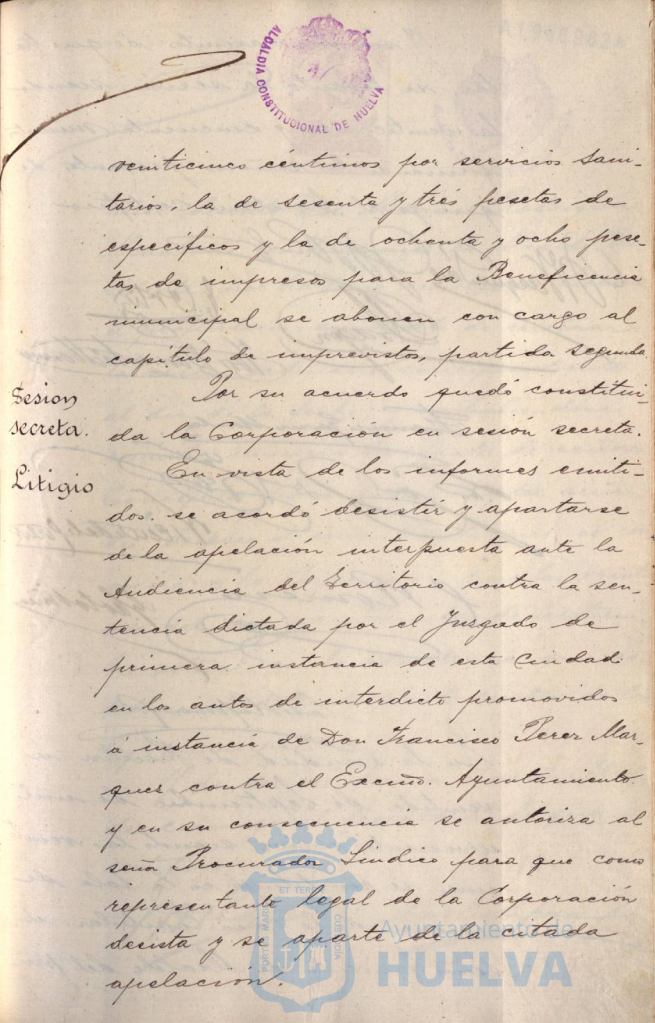 ALCALDIA CONSTITUCIONAL DE HUELVA
veinticinco céntimos por servicios sani-
tarios, la de sesenta y tres pesetas de
específicos y la de ochenta y ocho pese-
tas de impresos para la Beneficencia
municipal se abonen con cargo al
capítulo de imprevistos, partida segunda.
Sesion
secreta.
Por su acuerdo quedó constitui-
da la Corporación en sesión secreta.
Litigio
En vista de los informes emiti-
dos. se acordó desistir y apartarse
de la apelación interpuesta ante la
Audiencia del Territorio contra la sen-
tencia dictada por el Juzgado de
primera instancia de esta Ciudad
en los autos de interdicto promovidos
á instancia de Don Francisco Perez Mar-
quez contra el Excmo. Ayuntamiento
y en su consecuencia se autoriza al
señor Procurador Sindico para que como
representante legal de la Corporación
desista y se aparte de la citada
apelación.
Ayuntamiento de
HUELVA